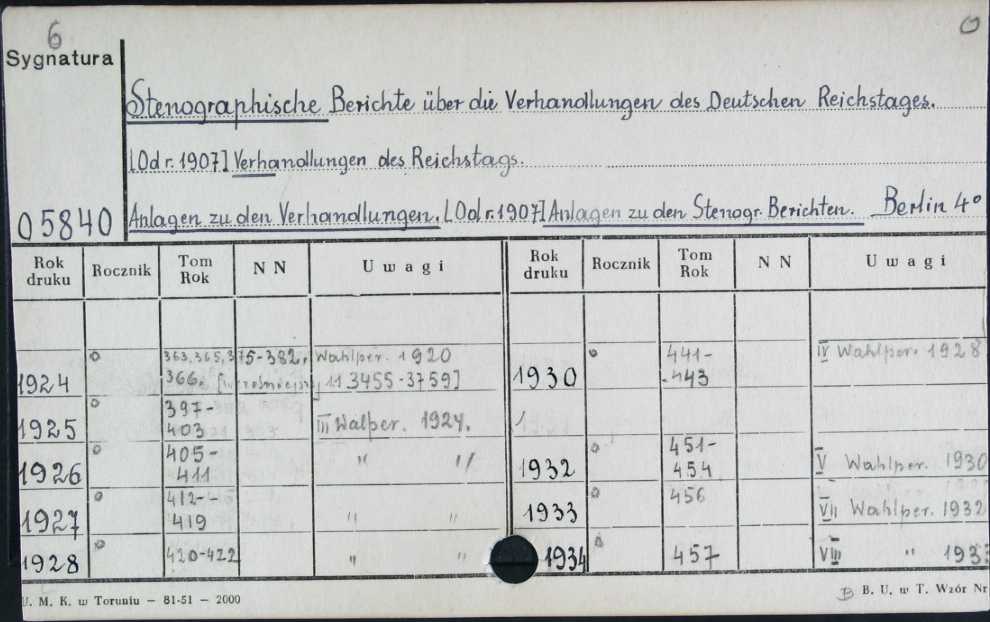 6
O
Sygnatura
Stenographische Berichte über die Verhandlungen des Deutschen Reichstages.
[Od r. 1907] Verhandlungen des Reichstags.
05840 Anlagen zu den Verhandlungen. [Od r. 1907] Anlagen zu den Stenogr. Berichten. Berlin 4°
Rok druku Rocznik Tom Rok N N Uwagi Rok druku Rocznik Tom Rok N N Uwagi
363, 365, 375-382. Wahlper. 1920
1924 o 366. 11 3455-3759]
1925 o 397-403 III Walper. 1924.
1926 o 405-411 " "
1927 o 412-419 " "
1928 o 420-422 " "
1930 o 441-443 IV Wahlper. 1928
1932 o 451-454 V Wahlper. 1930
1933 o 456 VII Wahlper. 1932
1934 o 457 VIII " 193
U. M. K. w Toruniu — 81-51 — 2000
B B. U. w T. Wzór Nr